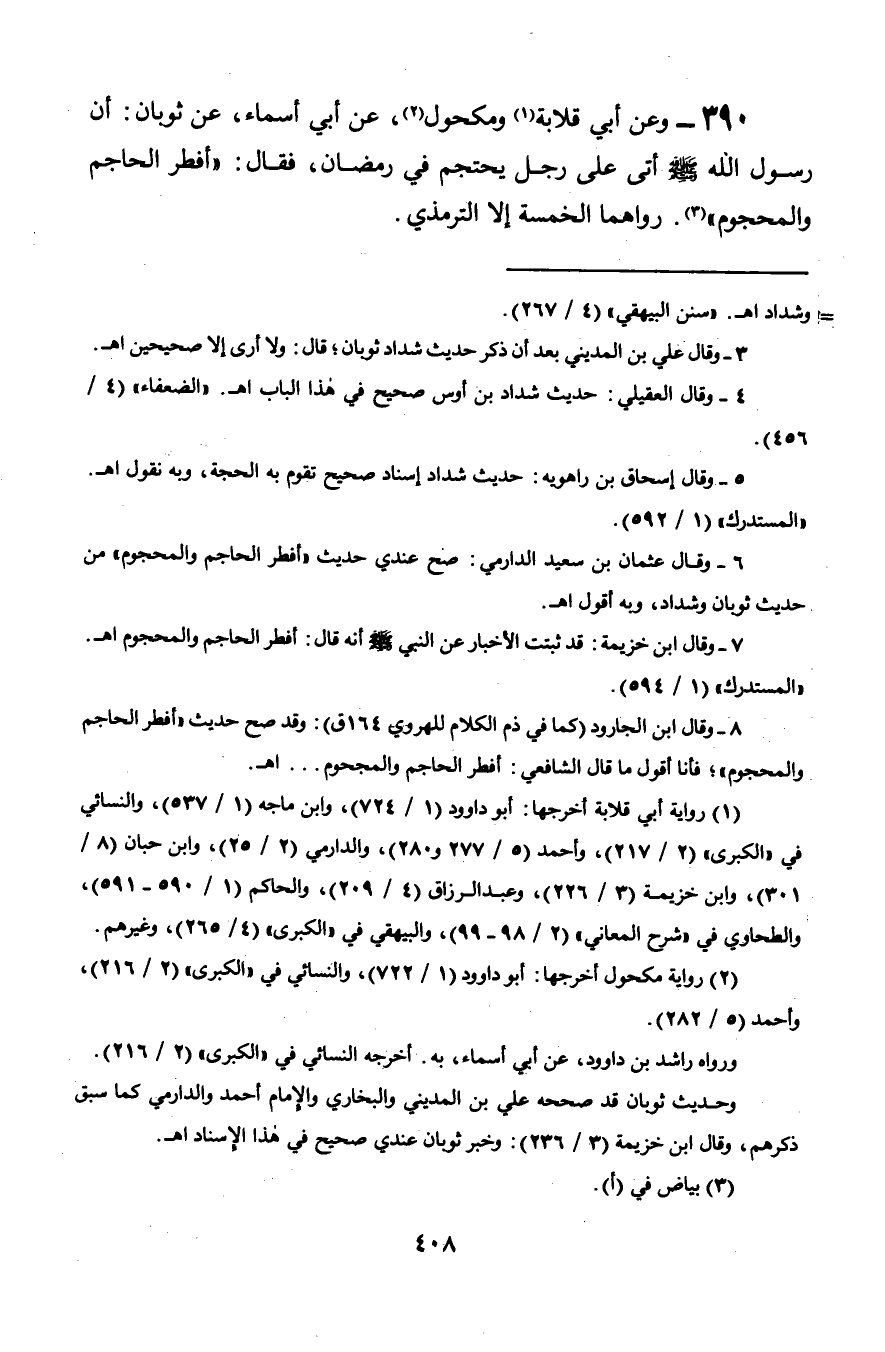 ٣٩٠ ـ وعن أبي قلابة(١) ومكحول(٢)، عن أبي أسماء، عن ثوبان: أن
رسول الله ﷺ أتى على رجل يحتجم في رمضان، فقال: «أفطر الحاجم
والمحجوم»(٣). رواهما الخمسة إلا الترمذي.
= وشداد اهـ. «سنن البيهقي» (٤ / ٢٦٧).
٣ ـ وقال علي بن المديني بعد أن ذكر حديث شداد ثوبان؛ قال: ولا أرى إلا صحيحين اهـ.
٤ ـ وقال العقيلي: حديث شداد بن أوس صحيح في هٰذا الباب اهـ. «الضعفاء» (٤ /
٤٥٦).
٥ ـ وقال إسحاق بن راهويه: حديث شداد إسناد صحيح تقوم به الحجة، وبه نقول اهـ.
«المستدرك» (١ / ٥٩٢).
٦ ـ وقال عثمان بن سعيد الدارمي: صح عندي حديث «أفطر الحاجم والمحجوم» من
حديث ثوبان وشداد، وبه أقول اهـ.
٧ ـ وقال ابن خزيمة: قد ثبتت الأخبار عن النبي ﷺ أنه قال: أفطر الحاجم والمحجوم اهـ.
«المستدرك» (١ / ٥٩٤).
٨ ـ وقال ابن الجارود (كما في ذم الكلام للهروي ١٦٤ق): وقد صح حديث «أفطر الحاجم
والمحجوم»؛ فأنا أقول ما قال الشافعي: أفطر الحاجم والمجحوم... اهـ.
(١) رواية أبي قلابة أخرجها: أبو داوود (١ / ٧٢٤)، وابن ماجه (١ / ٥٣٧)، والنسائي
في «الكبرى» (٢ / ٢١٧)، وأحمد (٥ / ٢٧٧ و٢٨٠)، والدارمي (٢ / ٢٥)، وابن حبان (٨ /
٣٠١)، وابن خزيمة (٣ / ٢٢٦)، وعبدالرزاق (٤ / ٢٠٩)، والحاكم (١ / ٥٩٠ ـ ٥٩١)،
والطحاوي في «شرح المعاني» (٢ / ٩٨ ـ ٩٩)، والبيهقي في «الكبرى» (٤/ ٢٦٥)، وغيرهم.
(٢) رواية مكحول أخرجها: أبو داوود (١ / ٧٢٢)، والنسائي في «الكبرى» (٢ / ٢١٦)،
وأحمد (٥ / ٢٨٢).
ورواه راشد بن داوود، عن أبي أسماء، به. أخرجه النسائي في «الكبرى» (٢ / ٢١٦).
وحديث ثوبان قد صححه علي بن المديني والبخاري والإمام أحمد والدارمي كما سبق
ذكرهم، وقال ابن خزيمة (٣ / ٢٣٦): وخبر ثوبان عندي صحيح في هٰذا الإسناد اهـ.
(٣) بياض في (أ).
٤٠٨